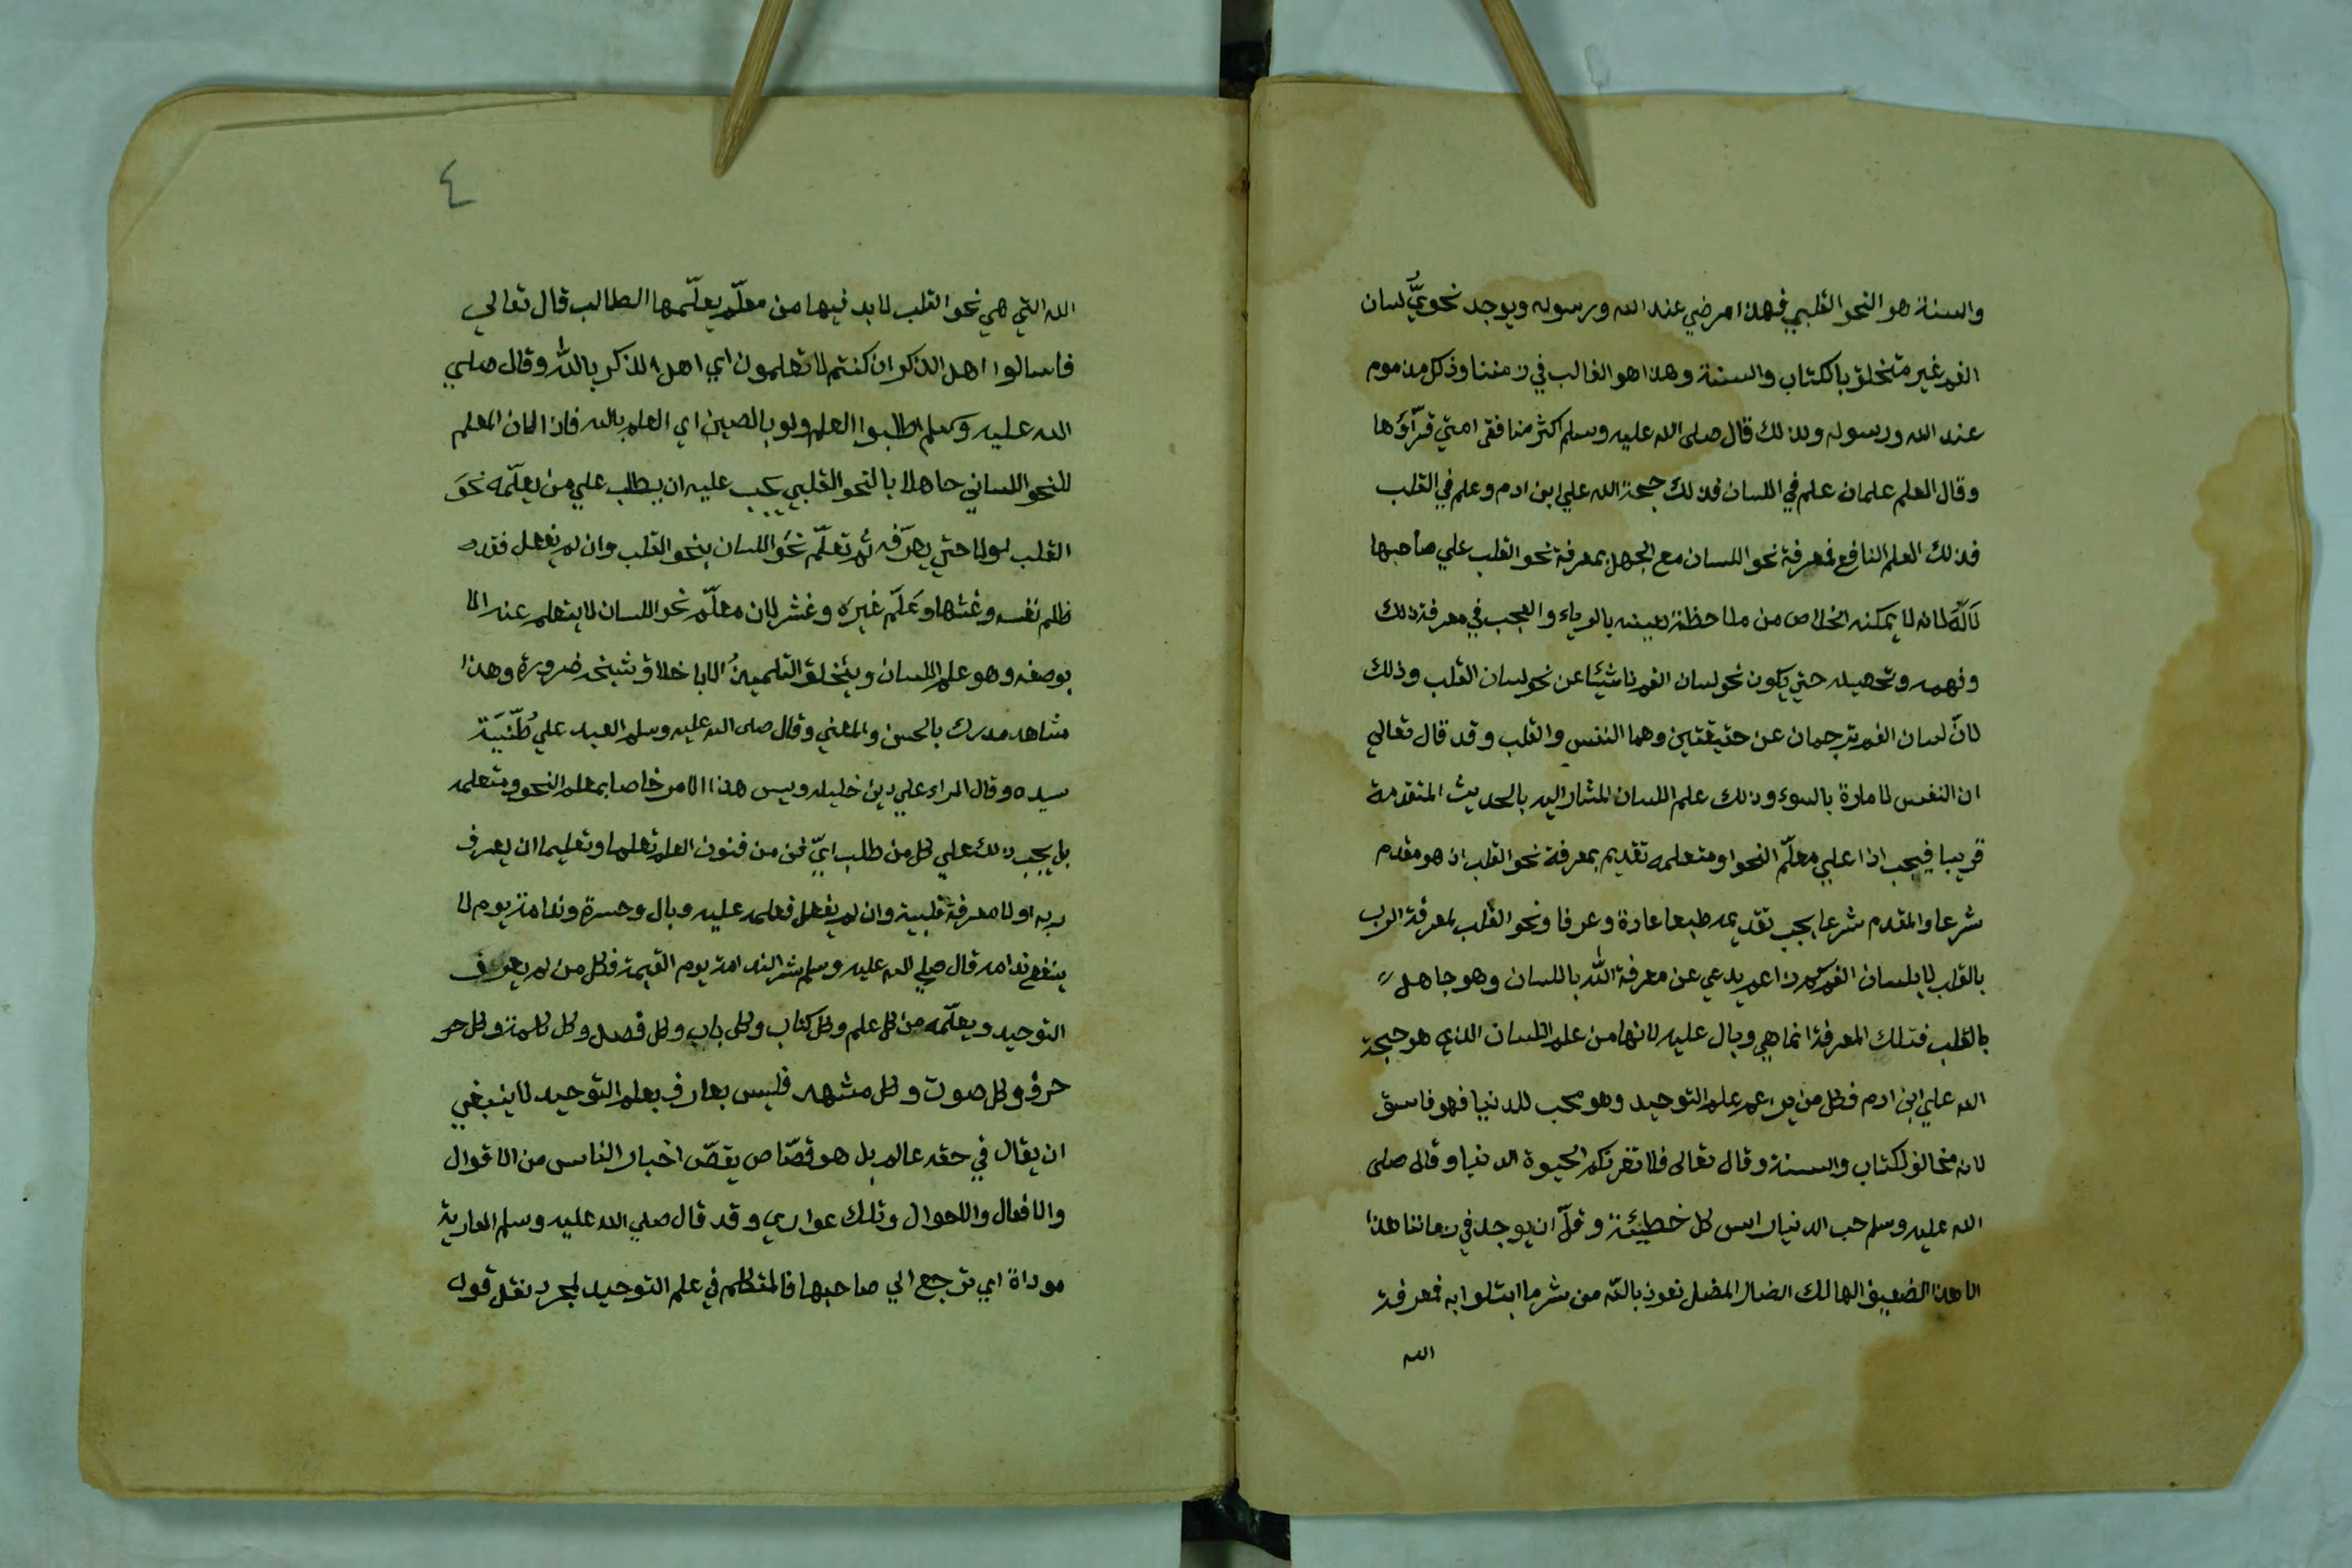 والسنة هو النحو القلبي فهذا مرضي عند الله ورسوله ويوجد نحويُّ لسان
الفم غير متخلق بالكتاب والسنة وهذا هو الغالب في زمننا وذلك مذموم
عند الله ورسوله ولذلك قال صلى الله عليه وسلم اكثر منافقي امتي قرّاؤها
وقال العلم علمان علم في اللسان فذلك حجة الله علي ابن ادم وعلم في القلب
فذلك العلم النافع فمعرفة نحو اللسان مع الجهل بمعرفة نحو القلب علي صاحبها
لانه لا يمكنه الخلاص من ملاحظة نفسه بالرياء والعجب في معرفة ذلك
وفهمه وتحصيله حتي يكون نحو لسان الفم ناشيئا عن نحو لسان القلب وذلك
لانّ لسان الفم ترجمان عن حقيقتين وهما النفس والقلب وقد قال تعالي
ان النفس لامارة بالسوء وذلك علم اللسان المشار اليه بالحديث المتقدمة
قريبا فيجب اذا علي معلّم النحو او متعلمه تقديم بمعرفة نحو القلب اذ هو مقدم
شرعا والمقدم شرعا يجب تقديمه طبعا عادة وعرفا ونحو القلب لمعرفة الرب
بالقلب لا بلسان الفم يدعي عن معرفة اللّٰه باللسان وهو جاهل
بالقلب فتلك المعرفة انما هي وبال عليه لانها من علم اللسان الذي هو حجة
الله علي ابن ادم فكل من علم التوحيد وهو محب للدنيا فهو فاسق
لانه مخالف لكتاب والسنة وقال تعالى فلا تغرنكم الحيوة الدنيا وقال صلى
الله عليه وسلم حب الدنيا راس كل خطيئة وقلّ ان يوجد في زماننا هذا
الا هذا الضعيف الهالك الضال المضل نعوذ باللّه من شر ما ابتلوا به فمعرفة
الله
٤
الله التي هي نحو القلب لا بد فيها من معلّم يعلّمها الطالب قال تعالي
فاسالوا اهل الذكر ان كنتم لا تعلمون اي اهل الذكر باللّٰه وقال صلي
الله عليه وسلم اطلبوا العلم ولو بالصين اي العلم بالله فاذا كان المعلم
للنحو اللساني جاهلا بالنحو القلبي يجب عليه ان يطلب علي من يعلّمه نحوَ
القلب اولا حتي يعرّفه ثم تعلّم نحَو اللسان بنحو القلب وان لم يفعل فقد
ظلم نفسه وغشها وعَلّم غيرَه وغشه لان معلّم نحو اللسان لا يتعلم عنه الا
بوصفه وهو علم اللسان ويتخلق التلميذُ الا باخلاق شيخه ضرورة وهذا
مشاهد مدرك بالحس والمعني وقال صلى الله عليه وسلم العبد علي طنّية
سيده وقال المراء علي دين خليله وليس هذا الامر خاصا بمعلم النحو ومتعلمه
بل يجب ذلك علي كل من طلب ايّ فن من فنون العلم تعلما وتعليما ان يعرف
ربه اولا معرفة قلبية وان لم يفعل فعلمه عليه وبال وحسرة وندامة يوم لا
ينفع ندامه قال صلي الله عليه وسلم شر الندامة يوم القيمة فكل من لم يعرف
التوحيد ويعلّمه من كل علم وكل كتاب وكل باب وكل فصل وكل كلمة وكل حر
حرف وكل صوت وكل مشهد فليس بعارف بعلم التوحيد لا ينبغي
ان يقال في حقه عالم بل هو قصّاص يقصّ اخبار الناس من الاقوال
والافعال والاحوال وتلك عواري وقد قال صلي الله عليه وسلم العارية
موداة اي ترجع الي صاحبها فالمتكلم في علم التوحيد بمجرد نقل قول